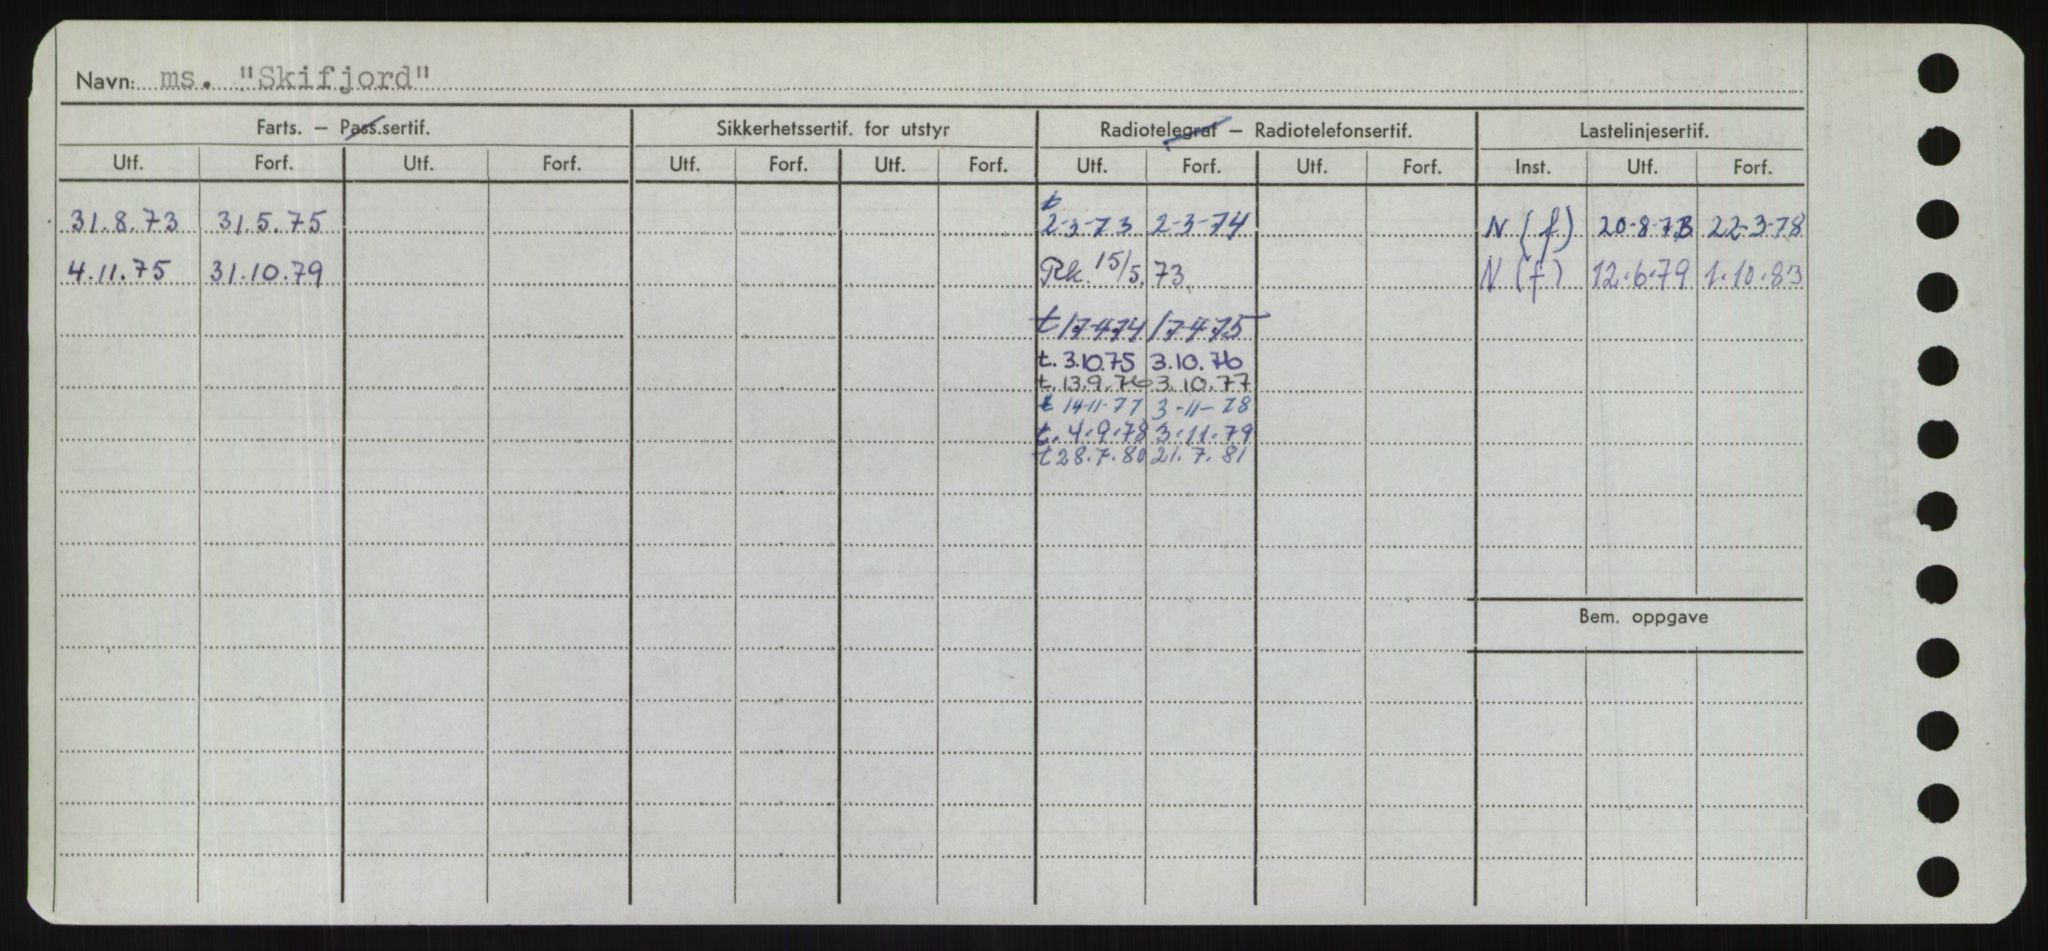 Navn: ms. "Skifjord"
Farts. – Pass.sertif. Sikkerhetssertif. for utstyr Radiotelegraf – Radiotelefonsertif. Lastelinjesertif.
Utf. Forf. Utf. Forf. Utf. Forf. Utf. Forf. Utf. Forf. Utf. Forf. Inst. Utf. Forf.
t
31.8.73 31.5.75 2-3-73 2-3-74 N (f) 20-8-73 22-3-78
4.11.75 31.10.79 Rk. 15/5.73 N (f) 12.6.79 1.10.83
t 17-4-74 17-4-75
t. 3.10.75 3.10.76
t. 13.9.76 3.10.77
t 14-11-77 3-11-78
t. 4.9.78 3.11.79
t 28.7.80 21.7.81
Bem. oppgave